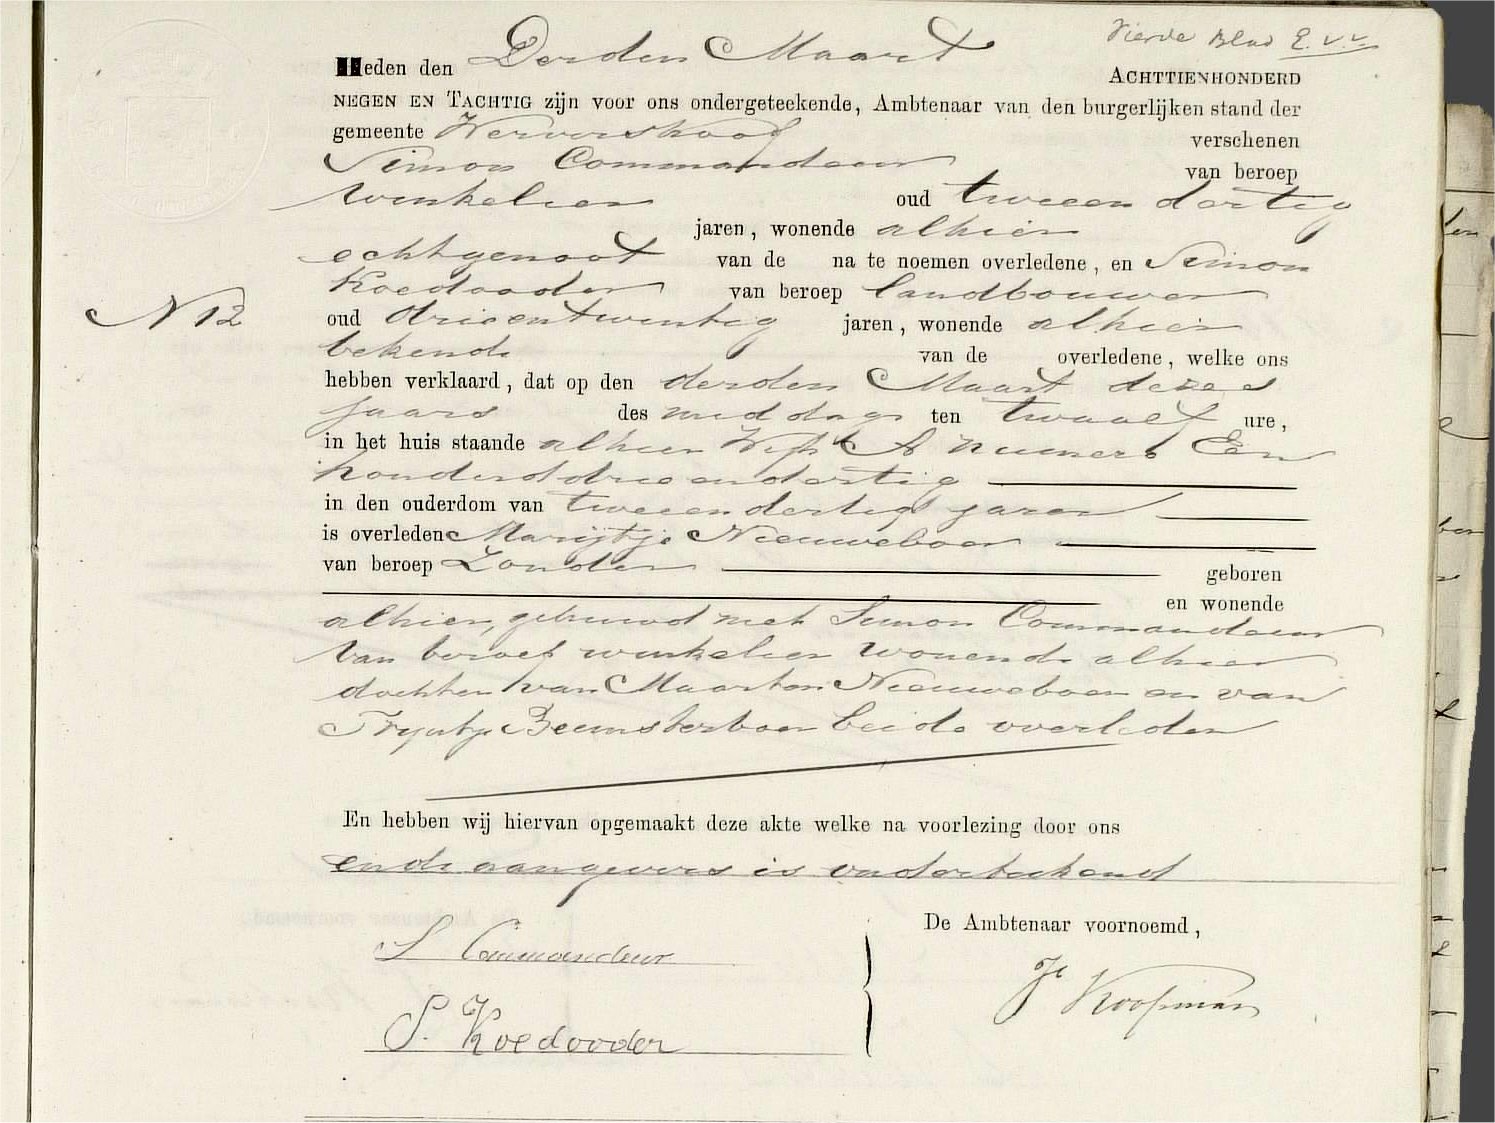 Vierde Blad E. v. v.
Heden den Derden Maart ACHTTIENHONDERD
NEGEN EN TACHTIG zijn voor ons ondergeteekende, Ambtenaar van den burgerlijken stand der
gemeente Wervershoof verschenen
Simon Commandeur van beroep
winkelier oud tweeendertig
jaren, wonende alhier
echtgenoot van de na te noemen overledene, en Simon
Koedooder van beroep landbouwer
N 12
oud drieentwintig jaren, wonende alhier
bekende van de overledene, welke ons
hebben verklaard, dat op den derden Maart dezes
jaars des middags ten twaalf ure,
in het huis staande alhier Wijk A numero Een
honderddrieendertig
in den ouderdom van tweeendertig jaren
is overleden Marijtje Nieuweboer
van beroep Zonder geboren
en wonende
alhier, gehuwd met Simon Commandeur
van beroep winkelier wonende alhier
dochter van Maarten Nieuweboer en van
Trijntje Beemsterboer beide overleden
En hebben wij hiervan opgemaakt deze akte welke na voorlezing door ons
en de aangevers is onderteekend
De Ambtenaar voornoemd,
S Commandeur
Koopman
S. Koedooder